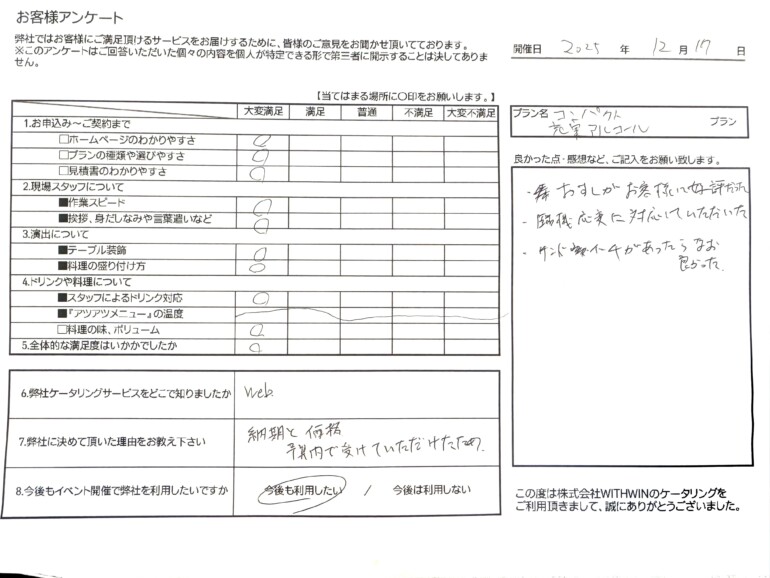 お客様アンケート
弊社ではお客様にご満足頂けるサービスをお届けするために、皆様のご意見をお聞かせ頂いております。
※このアンケートはご回答いただいた個々の内容を個人が特定できる形で第三者に開示することは決してありま
せん。
開催日 2025 年 12 月 17 日
【当てはまる場所に〇印をお願いします。】
大変満足 満足 普通 不満足 大変不満足
プラン名 コンパクト
充実アルコール プラン
1.お申込み～ご契約まで
□ホームページのわかりやすさ
□プランの種類や選びやすさ
□見積書のわかりやすさ
2.現場スタッフについて
■作業スピード
■挨拶、身だしなみや言葉遣いなど
3.演出について
■テーブル装飾
■料理の盛り付け方
4.ドリンクや料理について
■スタッフによるドリンク対応
■『アツアツメニュー』の温度
□料理の味、ボリューム
5.全体的な満足度はいかかでしたか
良かった点・感想など、ご記入をお願い致します。
・おすしがお客様に好評だった
・臨機応変に対応していただいた
・サンドイッチがあったらなお
良かった
6.弊社ケータリングサービスをどこで知りましたか Web.
7.弊社に決めて頂いた理由をお教え下さい 納期と価格
予算内で受けていただけたため.
8.今後もイベント開催で弊社を利用したいですか 今後も利用したい / 今後は利用しない
この度は株式会社WITHWINのケータリングを
ご利用頂きまして、誠にありがとうございました。